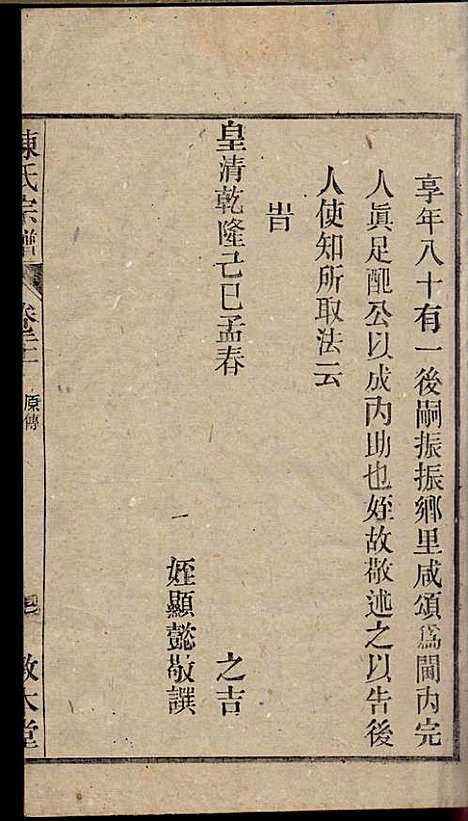 享年八十有一後嗣振振鄉里咸頌爲閫內完
人眞足配公以成內助也姪故敬述之以告後
人使知所取法云
旹
皇清乾隆己巳孟春 之吉
姪顯懿敬譔
陳氏宗譜 卷二 原傳 敦本堂